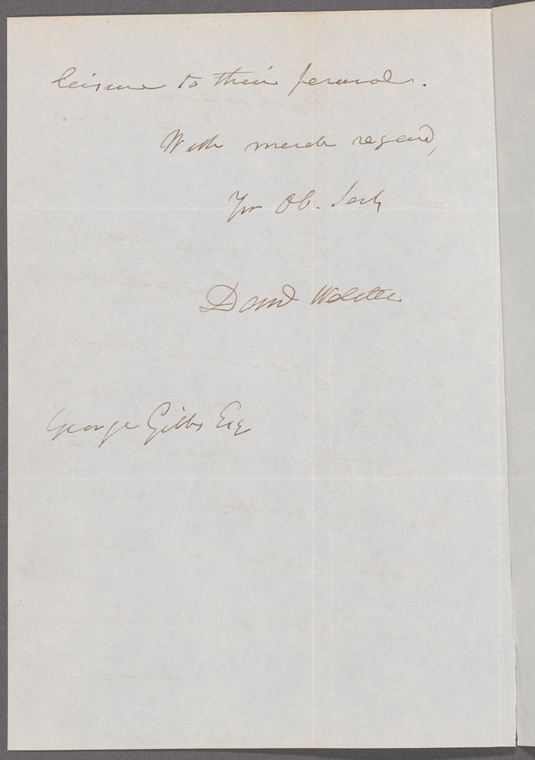 leisure to their perusal.
With much regard,
Yr Ob. Sert
David
George Gibbs Esq